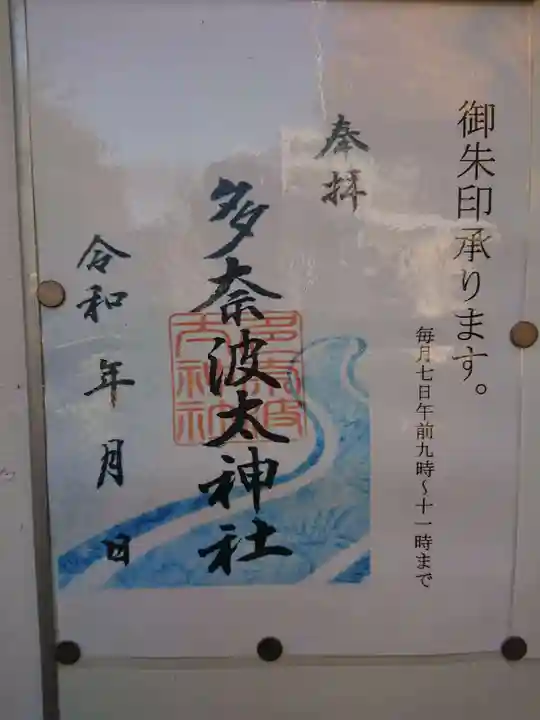 御朱印承ります。
毎月七日午前九時～十一時まで
奉拝
多奈波太神社
多奈波太神社
令和 年 月 日